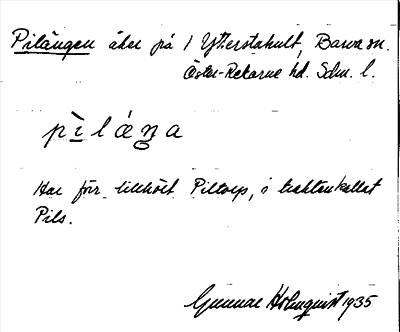 Pilängen åker på 1 Ytterstahult, Barva sn.
Öster-Rekarne hd. Sdm. l.
pìláŋa
Har förr tillhört Piltorp, i trakten kallat
Pils.
Gunnar Holmquist 1935